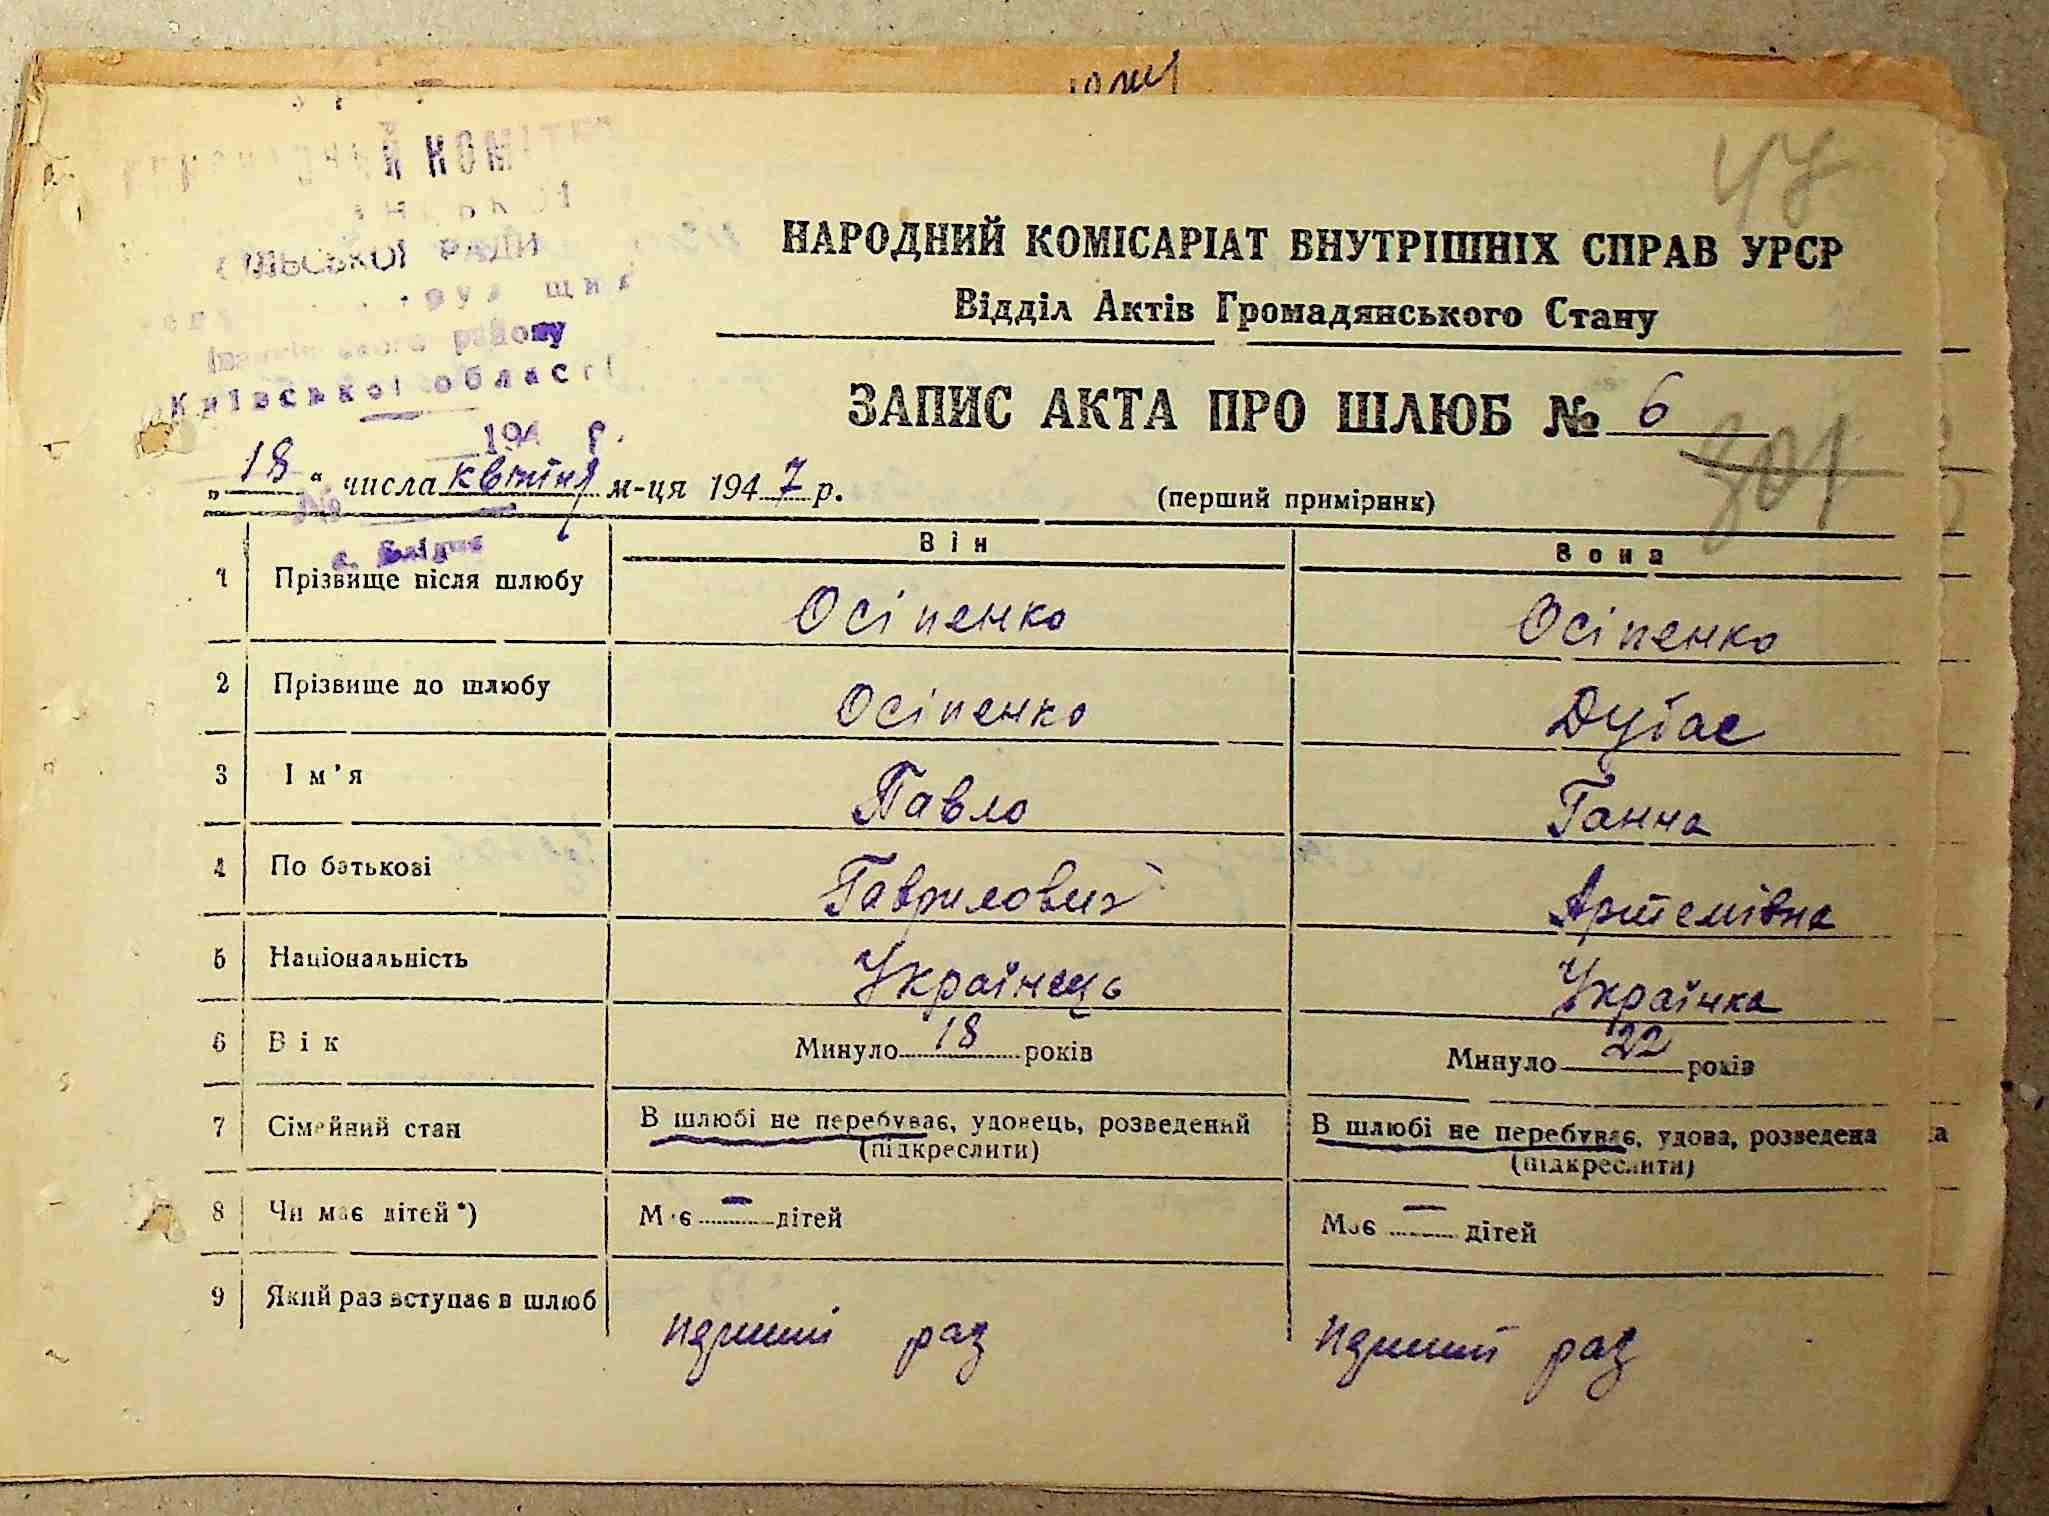 47
КОМІТЕТ
СІЛЬСЬКОЇ РАДИ
району
Київської області
194 р.
НАРОДНИЙ КОМІСАРІАТ ВНУТРІШНІХ СПРАВ УРСР
Відділ Актів Громадянського Стану
ЗАПИС АКТА ПРО ШЛЮБ № 6
801
„18“ числа квітня м-ця 1947 р. (перший примірник)
№
Він Вона
1 Прізвище після шлюбу Осіпенко Осіпенко
2 Прізвище до шлюбу Осіпенко Дубас
3 Ім'я Павло Ганна
4 По батькові Гаврилович Артемівна
5 Національність Українець Українка
6 Вік Минуло 18 років Минуло 22 років
7 Сімейний стан В шлюбі не перебуває, удовець, розведений В шлюбі не перебуває, удова, розведена
(підкреслити) (підкреслити)
8 Чи має дітей *) Має — дітей Має — дітей
9 Який раз вступає в шлюб перший раз перший раз